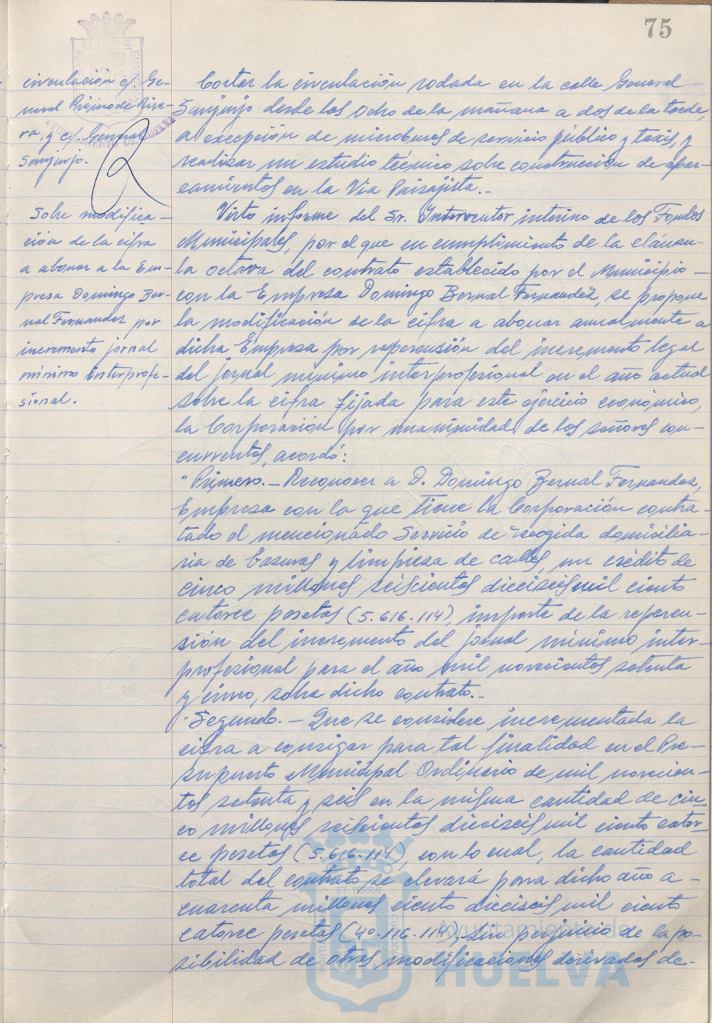 75
circulación c/ Ge-
neral Primo de Rive-
ra y c/ General
Sanjurjo.
Cortar la circulación rodada en la calle General
Sanjurjo desde las ocho de la mañana a dos de la tarde,
a excepción de microbuses de servicio público y taxis, y
realizar un estudio técnico sobre construcción de apar-
camientos en la Via Paisajista.-
Sobre modifica-
ción de la cifra
a abonar a la Em-
presa Domingo Ber-
nal Fernandez por
incremento jornal
mínimo interprofe-
sional.
Visto informe del Sr. Interventor interino de los Fondos
Municipales, por el que en cumplimiento de la cláusu-
la octava del contrato establecido por el Municipio
con la Empresa Domingo Bernal Fernandez, se propone
la modificación de la cifra a abonar anualmente a
dicha Empresa por repercusión del incremento legal
del jornal mínimo interprofesional en el año actual
sobre la cifra fijada para este ejercicio economico,
la Corporación por unanimidad de los señores con-
currentes, acordó:
"Primero.- Reconocer a D. Domingo Bernal Fernandez,
Empresa con la que tiene la Corporación contra-
tado el mencionado Servicio de recogida domicilia-
ria de basuras y limpieza de calles, un crédito de
cinco millones seiscientos dieciseis mil ciento
catorce pesetas (5.616.114), importe de la repercu-
sión del incremento del jornal mínimo inter-
profesional para el año mil novecientos setenta
y cinco, sobre dicho contrato.-
"Segundo.- Que se considere incrementada la
cifra a consigar para tal finalidad en el Pre-
supuesto Municipal Ordinario de mil novecien-
tos setenta y seis en la misma cantidad de cin-
co millones seiscientos dieciseis mil ciento cator-
ce pesetas (5.616.114), con lo cual, la cantidad
total del contrato se elevará para dicho año a
cuarenta millones ciento dieciseis mil ciento
catorce pesetas (40.116.114), sin perjuicio de la po-
sibilidad de otras modificaciones derivadas de-
Ayuntamiento de
HUELVA